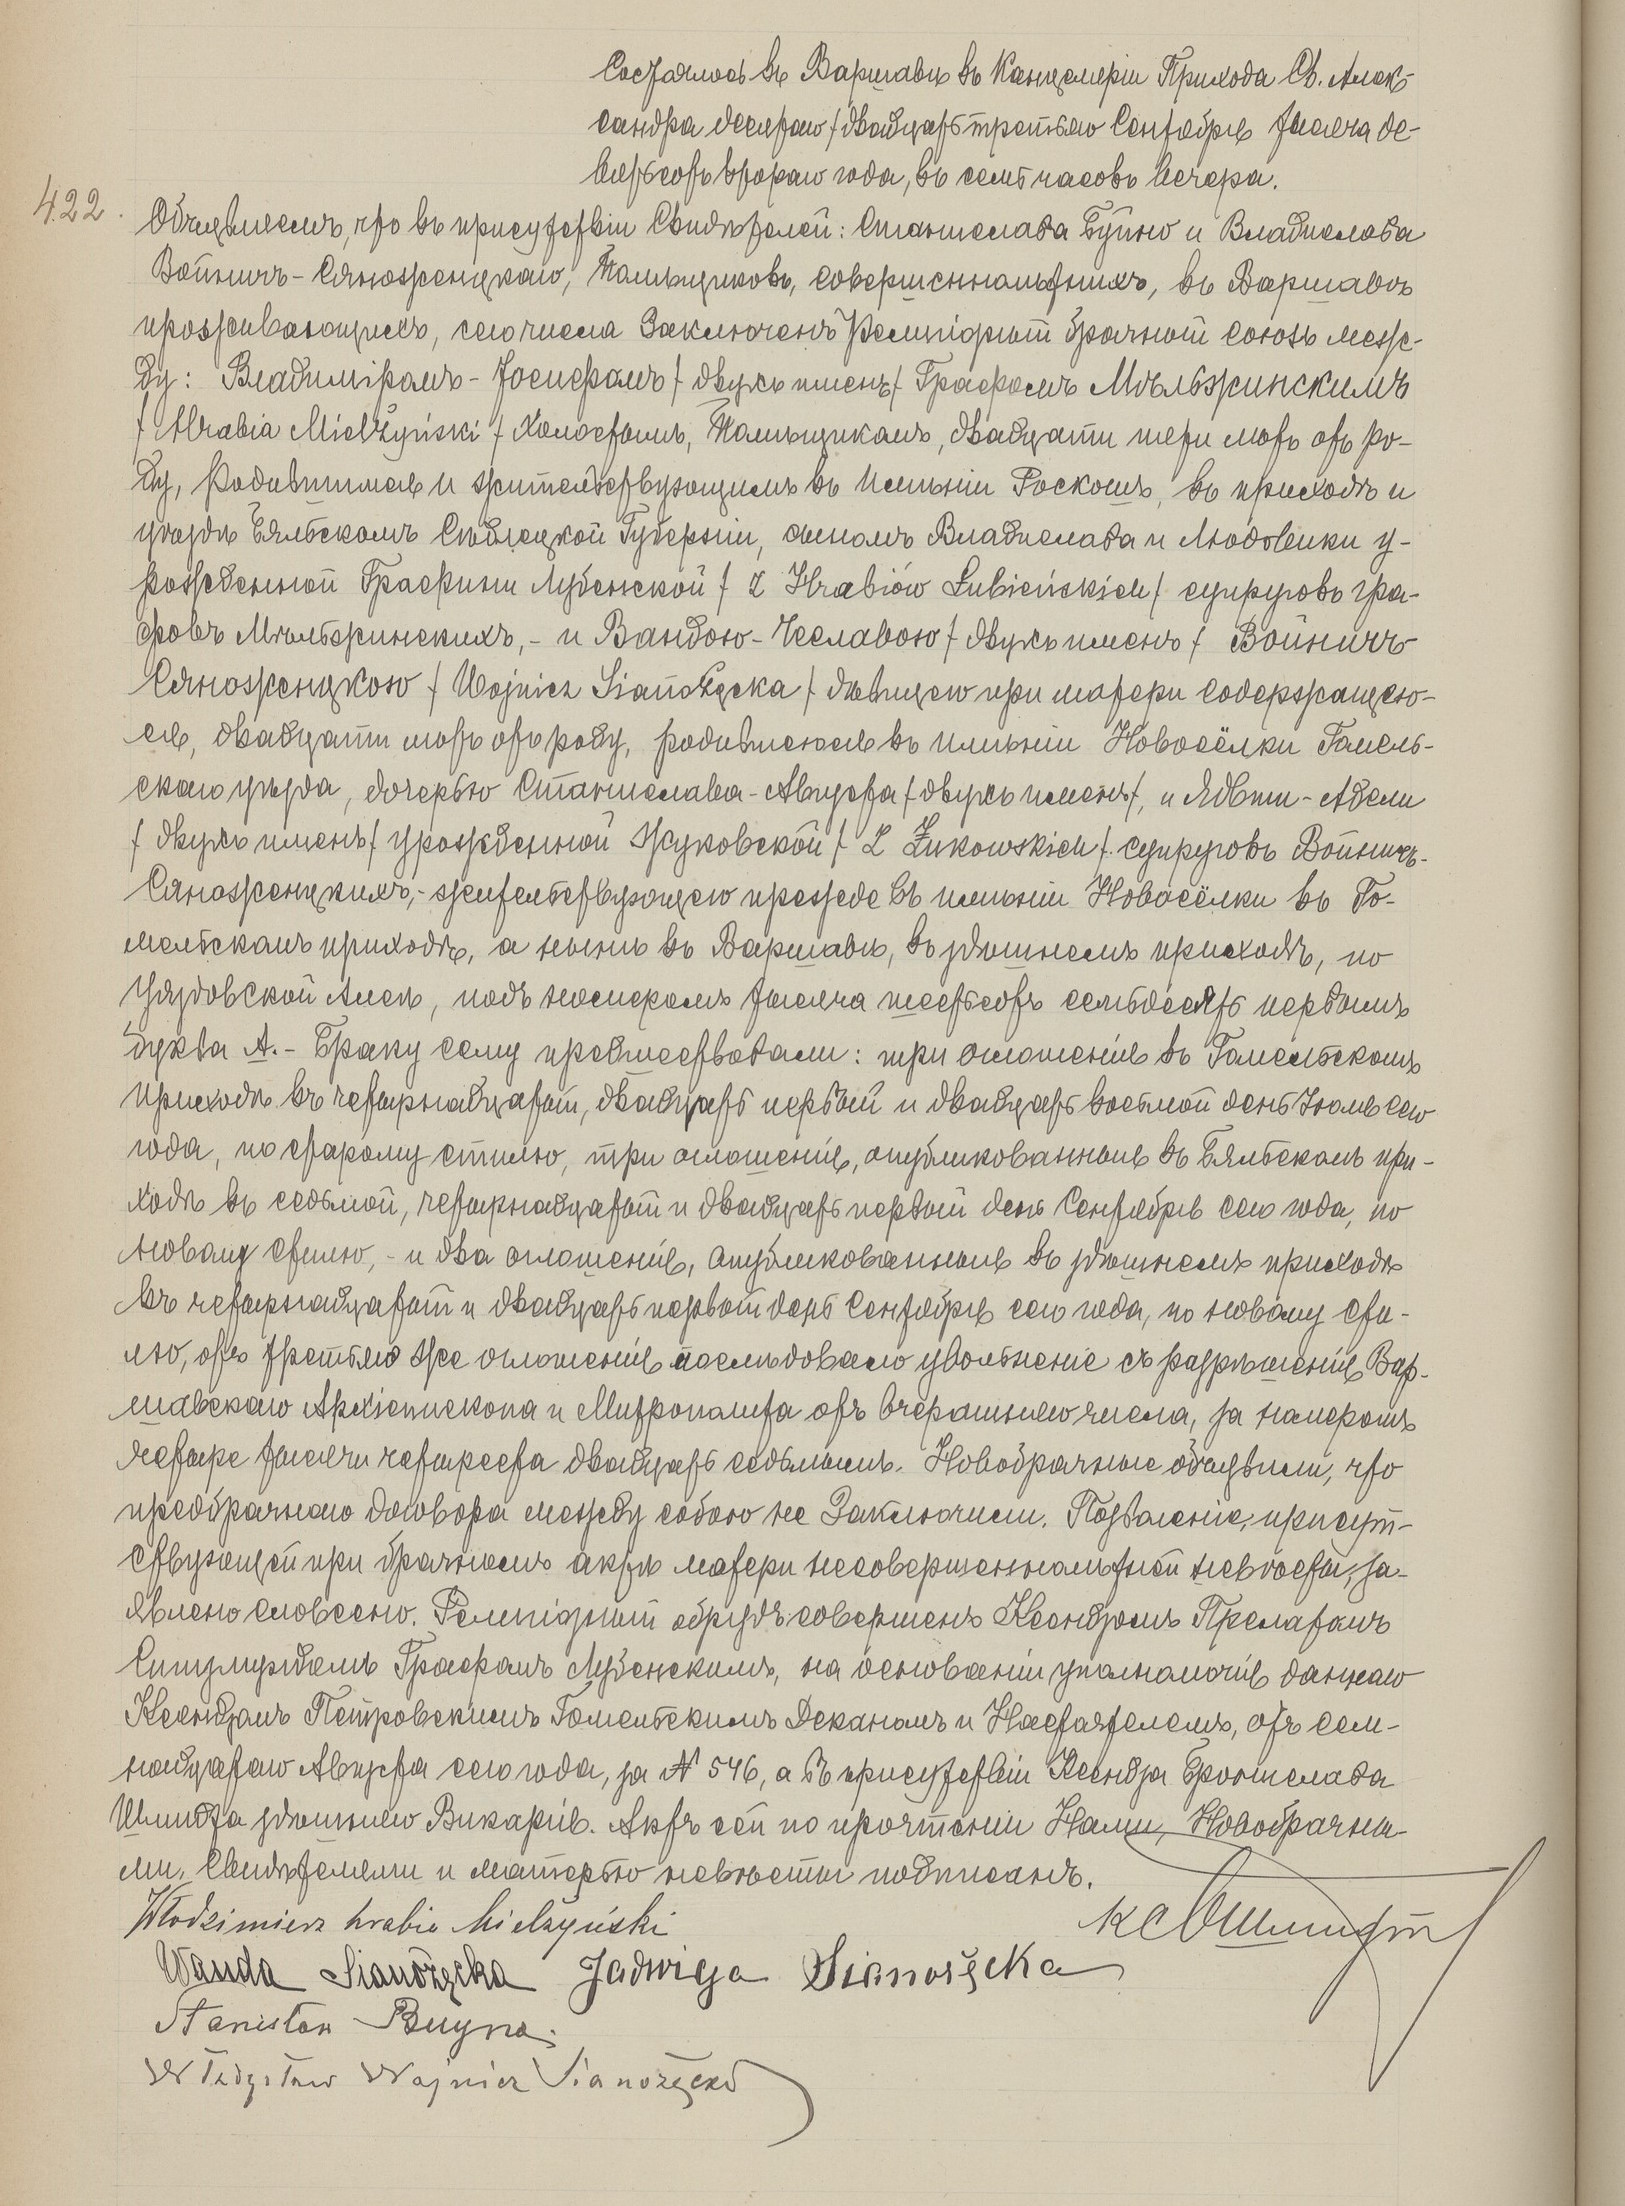 Состоялось въ Варшавѣ въ Канцеляріи Прихода Св. Алек-
сандра десятаго / двадцать третьяго Сентября тысяча де-
вятьсотъ втораго года, въ семь часовъ вечера.
422. Объявляемъ, что въ присутствіи Свидѣтелей: Станислава Буйно и Владислава
Войничъ-Сяноженцкаго, Помѣщиковъ, совершеннолѣтнихъ, въ Варшавѣ
проживающихъ, сего числа Заключенъ Религіозный брачный союзъ меж-
ду: Владиміромъ-Іосифомъ / двухъ именъ / Графомъ Мѣльжинскимъ
/ Hrabia Mielżyński / Холостымъ, Помѣщикомъ, двадцати пяти лѣтъ отъ ро-
ду, Родившимся и жительствующимъ въ Имѣніи Роскошъ, въ приходѣ и
уѣздѣ Бяльскомъ Сѣдлецкой Губерніи, сыномъ Владислава и Людовики у-
рожденной Графини Лубенской / z Hrabiów Łubieńskich / супруговъ Гра-
фовъ Мѣльжинскихъ, - и Вандою-Чеславою / двухъ именъ / Войничъ
Сяноженцкою / Wojnicz Sianożęcka / дѣвицею при матери содержащею-
ся, двадцати лѣтъ отъ роду, родившеюся въ имѣніи Новосёлки Гомель-
скаго уѣзда, дочерью Станислава-Августа / двухъ именъ /, и Ядвиги-Адели
/ двухъ именъ / урожденной Жуковской / z Żukowskich / супруговъ Войничъ-
Сяноженцкихъ, - жительствующею прежде въ имѣніи Новосёлки въ Го-
мельскомъ приходѣ, а нынѣ въ Варшавѣ, въ здѣшнемъ приходѣ, по
Уяздовской Алеѣ, подъ номеромъ тысяча шестьсотъ семьдесятъ первымъ
буква А. - Браку сему предшествовали: три оглашенія въ Гомельскомъ
приходѣ въ четырнадцатый, двадцать первый и двадцать восьмой день Іюля сего
года, по старому стилю, три оглашенія, опубликованныя въ Бяльскомъ при-
ходѣ въ седьмой, четырнадцатый и двадцать первый день Сентября сего года, по
новому стилю, - и два оглашенія, опубликованныя въ здѣшнемъ приходѣ
въ четырнадцатый и двадцать первый день Сентября сего года, по новому сти-
лю, отъ третьяго же оглашенія послѣдовало увольненіе съ разрѣшенія Вар-
шавскаго Архіепископа и Митрополита отъ вчерашняго числа, за номеромъ
четыре тысячи четыреста двадцать седьмымъ. Новобрачные объявили, что
предбрачнаго договора между собою не Заключили. Позволеніе, присут-
ствующей при брачномъ актѣ матери несовершеннолѣтней невѣсты, за-
явлено словесно. Религіозный обрядъ совершенъ Ксендзомъ Прелатомъ
Графомъ Лубенскимъ, на основаніи уполномочія даннаго
Ксендзомъ Петровскимъ Гомельскимъ Деканомъ и Настоятелемъ, отъ сем-
надцатаго Августа сего года, за № 546, а въ присутствіи Ксендза Бронислава
Шмидта здѣшняго Викарія. Актъ сей по прочтеніи Нами, Новобрачны-
ми, Свидѣтелями и матерью невѣсты подписанъ.
Włodzimierz hrabia Mielżyński
Wanda Sianożęcka Jadwiga Sianożęcka
Stanisław Buyno.
Władysław Wojnicz Sianożęcki